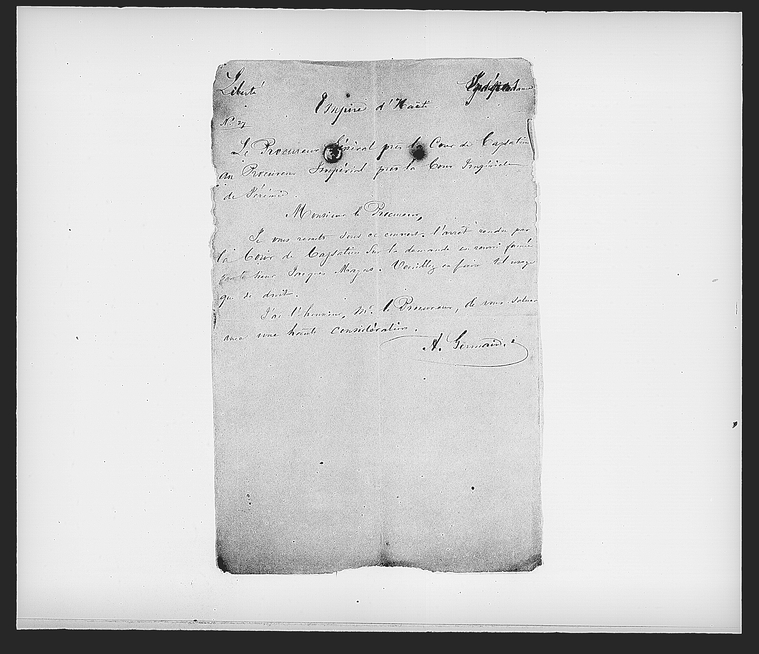 Liberté
Indépendance
Empire d'Haïti
N° 27
Le Procureur Général près la Cour de Cassation
au Procureur Impérial près la Cour Impériale
de Jérémie
Monsieur le Procureur,
Je vous remets sous ce couvert l'arrêt rendu par
la Cour de Cassation sur la demande en renvoi formée
par le sieur Jacques . Veuillez en faire tel usage
que de droit.
J'ai l'honneur, Mr. le Procureur, de vous saluer
avec une haute considération.
A. Germain.